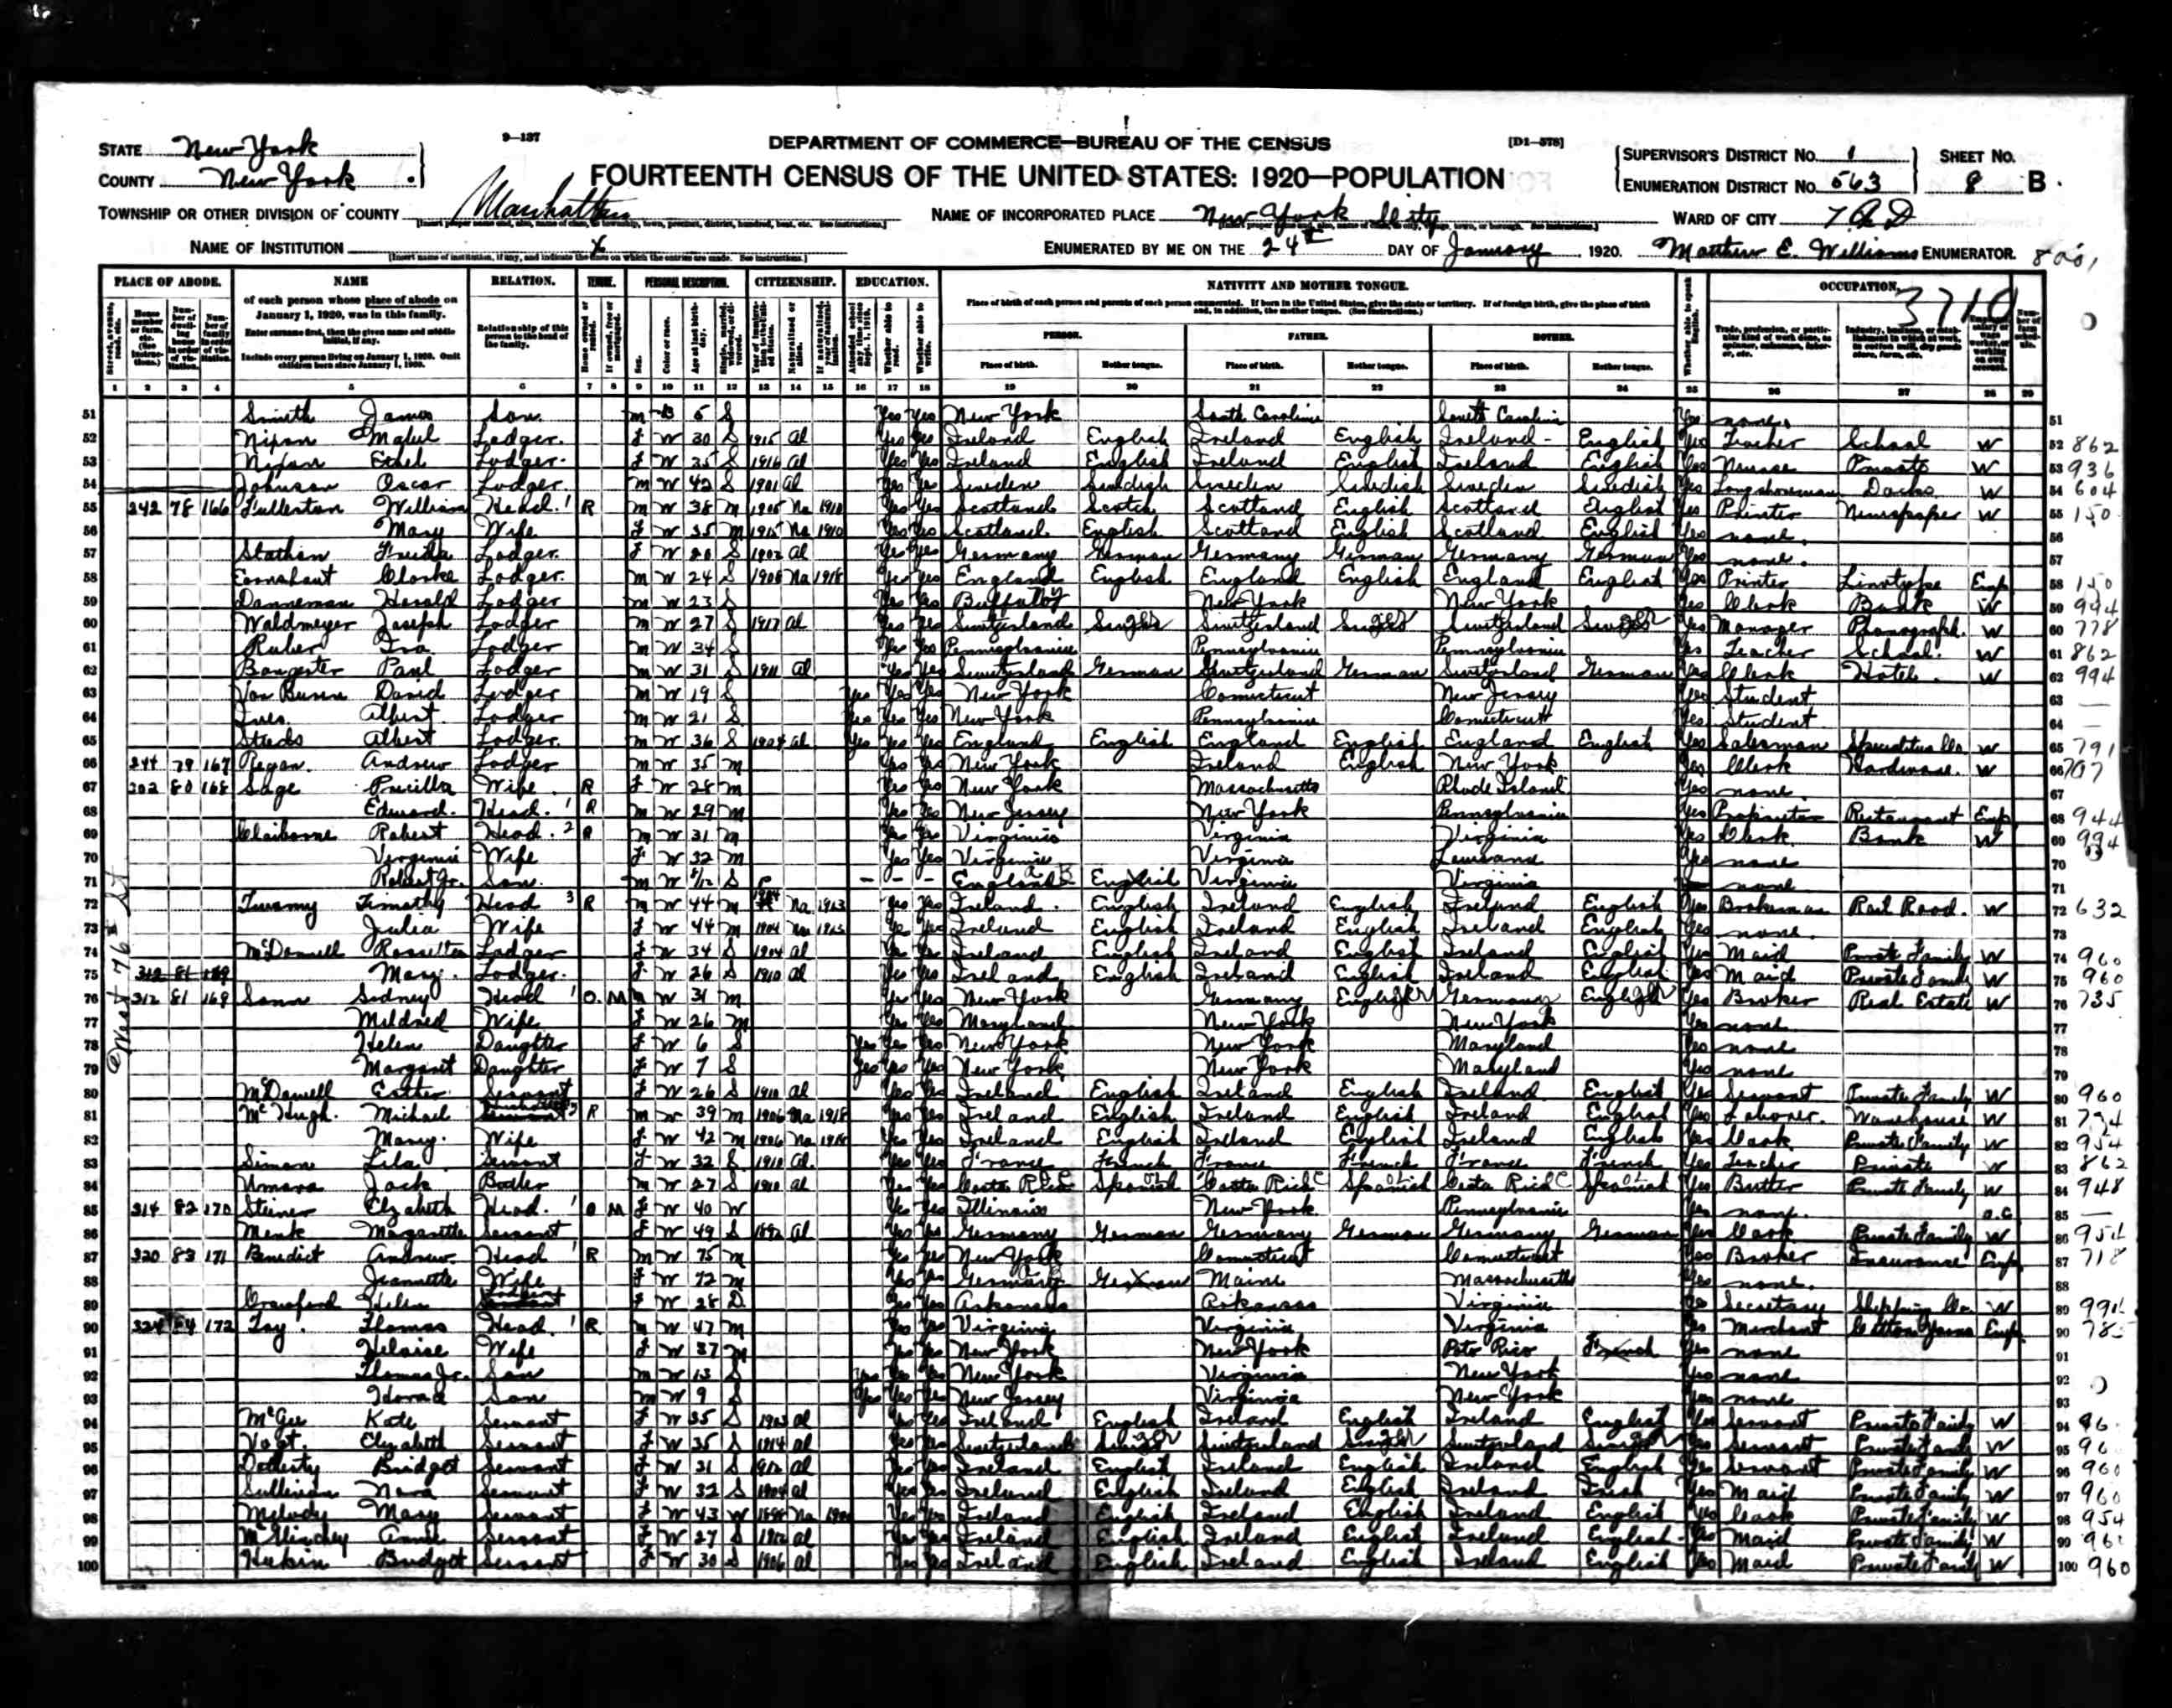 9—137
DEPARTMENT OF COMMERCE—BUREAU OF THE CENSUS
[D1—578]
STATE New York
COUNTY New York
FOURTEENTH CENSUS OF THE UNITED STATES: 1920—POPULATION
SUPERVISOR'S DISTRICT No. 1
ENUMERATION DISTRICT No. 563
SHEET NO. 8 B
TOWNSHIP OR OTHER DIVISION OF COUNTY Manhattan
NAME OF INCORPORATED PLACE New York City
WARD OF CITY 7 A D
NAME OF INSTITUTION X
ENUMERATED BY ME ON THE 24th DAY OF January, 1920. Matthew E. Williams ENUMERATOR.
3710
PLACE OF ABODE. NAME RELATION. TENURE. PERSONAL DESCRIPTION. CITIZENSHIP. EDUCATION. NATIVITY AND MOTHER TONGUE. OCCUPATION.
of each person whose place of abode on January 1, 1920, was in this family.
Enter surname first, then the given name and middle initial, if any.
Include every person living on January 1, 1920. Omit children born since January 1, 1920.
Relationship of this person to the head of the family.
Place of birth of each person and parents of each person enumerated. If born in the United States, give the state or territory. If of foreign birth, give the place of birth and, in addition, the mother tongue. (See instructions.)
PERSON. FATHER. MOTHER.
Place of birth. Mother tongue. Place of birth. Mother tongue. Place of birth. Mother tongue.
1 2 3 4 5 6 7 8 9 10 11 12 13 14 15 16 17 18 19 20 21 22 23 24 25 26 27 28 29
West 76th St
51 Smith James Son m B 5 S Yes Yes New York South Carolina South Carolina Yes none 51
52 Nixon Mabel Lodger F W 30 S 1915 Al Yes Yes Ireland English Ireland English Ireland English Yes Teacher School W 52 862
53 Nixon Ethel Lodger F W 35 S 1916 Al Yes Yes Ireland English Ireland English Ireland English Yes Nurse Private W 53 936
54 Johnson Oscar Lodger m W 42 S 1901 Al Yes Yes Sweden Swedish Sweden Swedish Sweden Swedish Yes Longshoreman Docks W 54 604
55 242 78 166 Fullerton William Head 1 R m W 38 m 1905 Na 1910 Yes Yes Scotland Scotch Scotland English Scotland English Yes Printer Newspaper W 55 150
56 Mary Wife F W 35 m 1915 Na 1910 Yes Yes Scotland English Scotland English Scotland English Yes none 56
57 Frieda Lodger F W 20 S 1902 Al Yes Yes Germany German Germany German Germany German Yes none 57
58 Clarke Lodger m W 24 S 1908 Na 1918 Yes Yes England English England English England English Yes Printer Linotype Emp 58 150
59 Danneman Harold Lodger m W 23 S Yes Yes Buffalo New York New York Yes Clerk Bank W 59 994
60 Waldmeyer Joseph Lodger m W 27 S 1917 Al Yes Yes Switzerland Switzerland Switzerland Yes Manager Phonograph W 60 778
61 Ruber Ira Lodger m W 34 S Yes Yes Pennsylvania Pennsylvania Pennsylvania Yes Teacher School W 61 862
62 Paul Lodger m W 31 S 1911 Al Yes Yes Switzerland German Switzerland German Switzerland German Yes Clerk Hotel W 62 994
63 Van Buren David Lodger m W 19 S Yes Yes Yes New York Connecticut New Jersey Yes Student 63
64 Ives Albert Lodger m W 21 S Yes Yes Yes New York Pennsylvania Connecticut Yes Student 64
65 Albert Lodger m W 36 S 1904 Al Yes Yes Yes England English England English England English Yes Salesman W 65 791
66 244 79 167 Regan Andrew Lodger m W 35 m Yes Yes New York Ireland English New York Yes Clerk Hardware W 66 707
67 302 80 168 Sage Pricilla Wife R F W 28 m Yes Yes New York Massachusetts Rhode Island Yes none 67
68 Edward Head 1 R m W 29 m Yes Yes New Jersey New York Pennsylvania Yes Proprietor Restaurant Emp 68 944
69 Claiborne Robert Head 2 R m W 31 m Yes Yes Virginia Virginia Virginia Yes Clerk Bank W 69 994
70 Virginia Wife F W 32 m Yes Yes Virginia Virginia Louisiana Yes none 70
71 Robert Jr. Son m W S – – – England English Virginia Virginia none 71
72 Twomy Timothy Head 3 R m W 44 m 1904 Na 1913 Yes Yes Ireland English Ireland English Ireland English Yes Brakeman Rail Road W 72 632
73 Julia Wife F W 44 m 1904 Na 1913 Yes Yes Ireland English Ireland English Ireland English Yes none 73
74 McDonnell Lodger F W 34 S 1904 Al Yes Yes Ireland English Ireland English Ireland English Yes Maid Private Family W 74 960
75 312 81 169 Mary Lodger F W 26 S 1910 Al Yes Yes Ireland English Ireland English Ireland English Yes Maid Private Family W 75 960
76 312 81 169 Sonn Sidney Head 1 O M m W 31 m Yes Yes New York Germany Germany Yes Broker Real Estate W 76 735
77 Mildred Wife F W 26 m Yes Yes Maryland New York New York Yes none 77
78 Helen Daughter F W 6 S Yes Yes Yes New York New York Maryland Yes none 78
79 Margaret Daughter F W 7 S Yes Yes Yes New York New York Maryland Yes none 79
80 McDowell Esther Servant F W 26 S 1910 Al Yes Yes Ireland English Ireland English Ireland English Yes Servant Private Family W 80 960
81 McHugh Michael R m W 39 m 1906 Na 1918 Yes Yes Ireland English Ireland English Ireland English Yes Laborer Warehouse W 81
82 Mary Wife F W 42 m 1906 Na 1918 Yes Yes Ireland English Ireland English Ireland English Yes Cook Private Family W 82 954
83 Simon Lila Servant F W 32 S 1910 Al Yes Yes France French France French France French Yes Teacher Private W 83 862
84 Umana Jack Butler m W 27 S 1910 Al Yes Yes Costa Rica Spanish Costa Rica Spanish Costa Rica Spanish Yes Butler Private Family W 84 948
85 314 82 170 Steiner Elizabeth Head 1 O M F W 40 W Yes Yes Illinois New York Pennsylvania Yes none 85
86 Menk Margarette Servant F W 49 S 1892 Al Yes Yes Germany German Germany German Germany German Yes Cook Private Family W 86 954
87 320 83 171 Benedict Andrew Head 1 R m W 75 m Yes Yes New York Connecticut Connecticut Yes Broker Insurance Emp 87 718
88 Jeannette Wife F W 72 m Yes Yes Germany German Maine Massachusetts Yes none 88
89 Crawford Helen F W 28 D Yes Yes Arkansas Arkansas Virginia Yes Secretary Shipping Co. W 89 994
90 324 84 172 Fay Thomas Head 1 R m W 47 m Yes Yes Virginia Virginia Virginia Yes Merchant Cotton Emp 90 78
91 Heloise Wife F W 37 m Yes Yes New York New York Poto Rico French Yes none 91
92 Thomas Jr. Son m W 13 S Yes Yes Yes New York Virginia New York Yes none 92
93 Son m W 9 S Yes Yes Yes New Jersey Virginia New York Yes none 93
94 McGee Kate Servant F W 35 S 1903 Al Yes Yes Ireland English Ireland English Ireland English Yes Servant Private Family W 94 96
95 Vogt Elizabeth Servant F W 35 S 1914 Al Yes Yes Switzerland Switzerland Switzerland Yes Servant Private Family W 95 96
96 Doherty Bridget Servant F W 31 S 1912 Al Yes Yes Ireland English Ireland English Ireland English Yes Servant Private Family W 96 960
97 Sullivan Nora Servant F W 32 S 1904 Al Yes Yes Ireland English Ireland English Ireland Irish Yes Maid Private Family W 97 960
98 Melody Mary Servant F W 43 W Na Yes Yes Ireland English Ireland English Ireland English Yes Cook Private Family W 98 954
99 McGlinchey Annie Servant F W 27 S 1912 Al Yes Yes Ireland English Ireland English Ireland English Yes Maid Private Family W 99 960
100 Bridget Servant F W 30 S 1906 Al Yes Yes Ireland English Ireland English Ireland English Yes Maid Private Family W 100 960